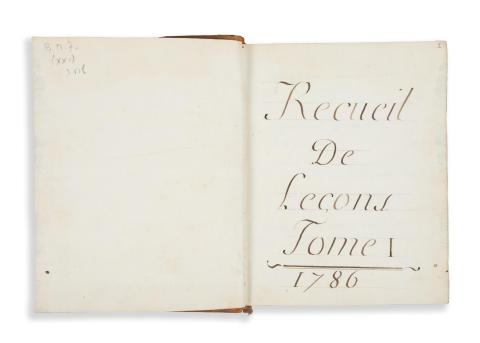 B.N.F.
(xxi)
Recueil
De
Leçons
Tome I
1786